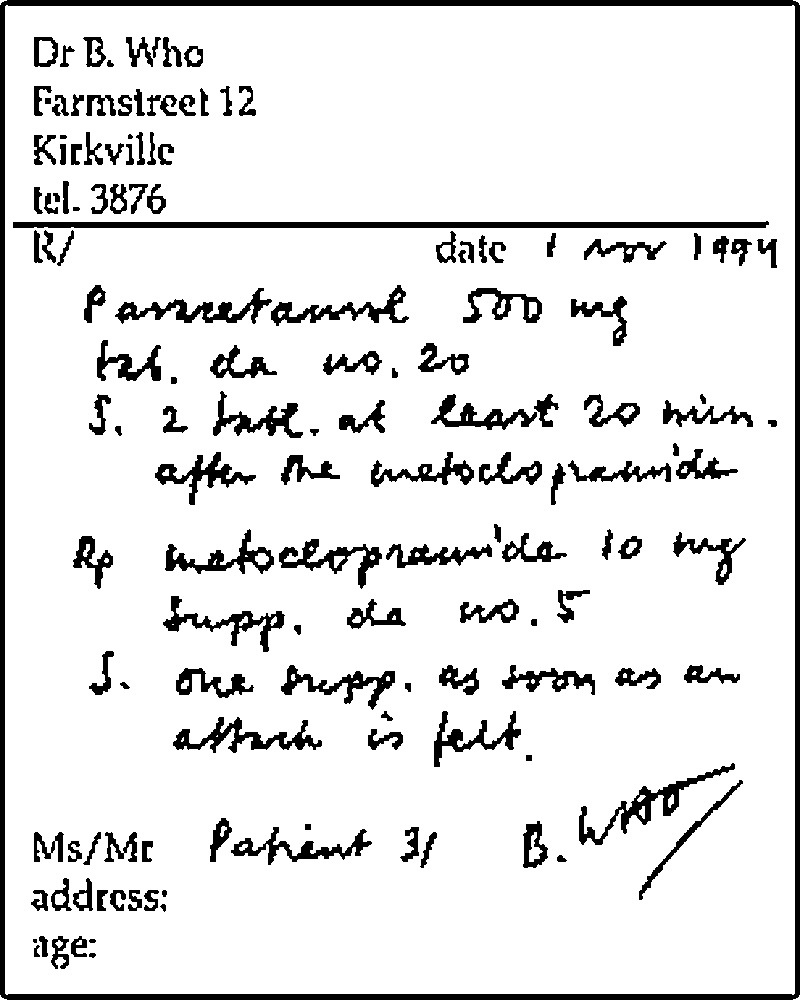 Dr B. Who
Farmstreet 12
Kirkville
tel. 3876
R/ date 1 nov 1994
Paracetamol 500 mg
tab. da no. 20
S. 2 tabl. at least 20 min.
after the metoclopramide
Rp metoclopramide 10 mg
supp. da no. 5
S. one supp. as soon as an
attack is felt.
Ms/Mr Patient 31 B. WHO
address:
age: